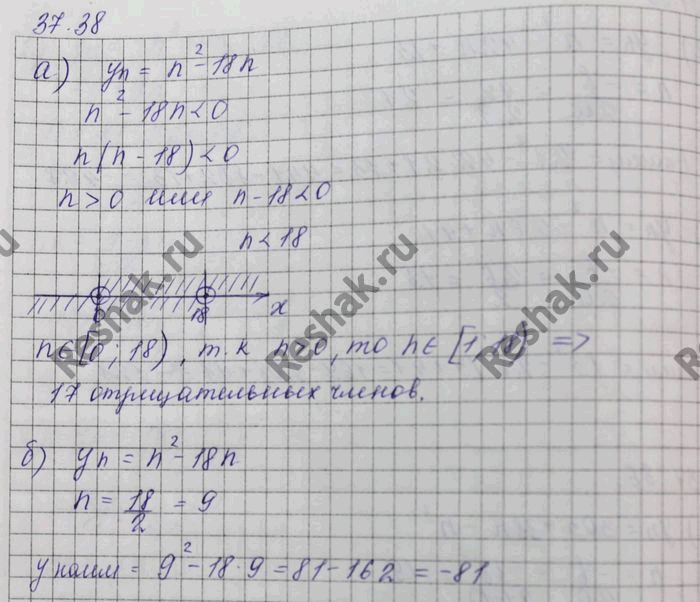 37.38
а) yn = n² - 18n
n² - 18n < 0
n(n - 18) < 0
n > 0 или n - 18 < 0
n < 18
0 18 x
n ∈ (0; 18), т.к n > 0, то n ∈ [1, 18) =>
17 отрицательных членов.
б) yn = n² - 18n
n = 18/2 = 9
y наим = 9² - 18·9 = 81 - 162 = -81
Reshak.ru
Reshak.ru
Reshak.ru